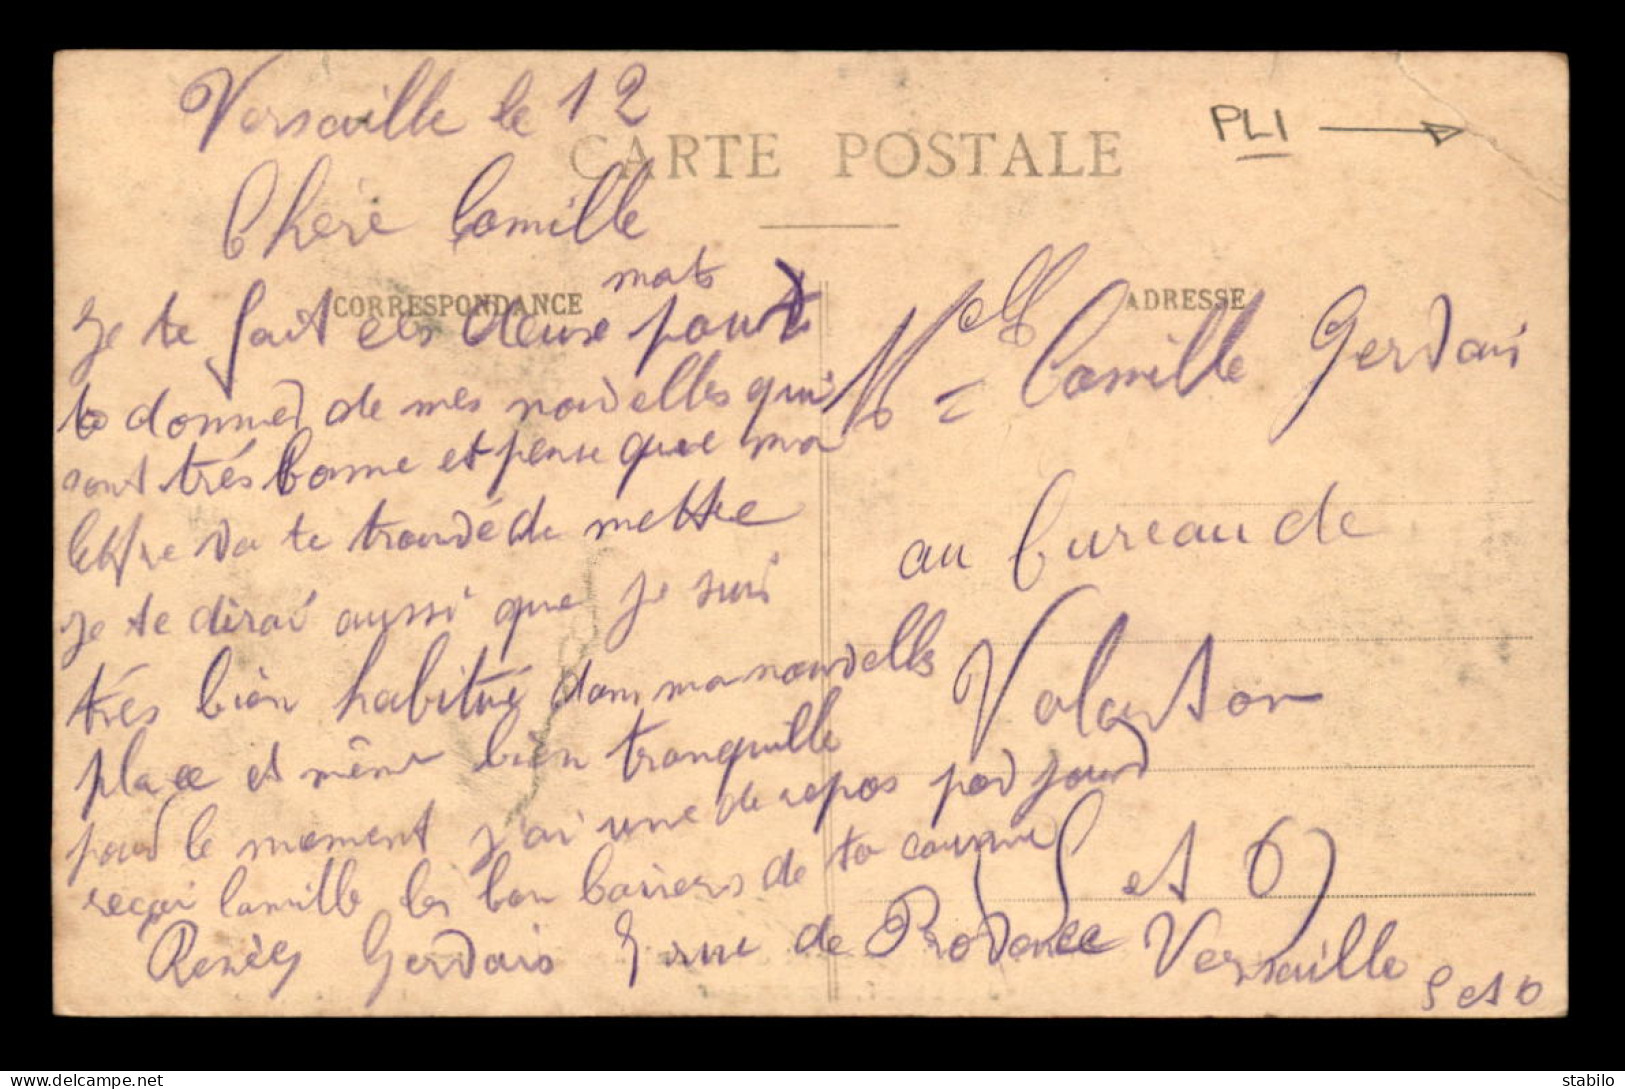 Versaille le 12
CARTE POSTALE
PLI
Chère Camille
CORRESPONDANCE
mots
Je te fait ces deux pour
te donner de mes nouvelles qui
sont très bonne et pense que ma
lettre va te trouvé de mettre
je te dirai aussi que je suis
très bien habitué dans ma nouvelle
place et même bien tranquille
pour le moment j'ai une de repos par jour
reçoi Camille les bon baisers de ta cousine
Renée Gervais 5 rue de Provence Versaille
ADRESSE
Melle Camille Gervais
au bureau de
Valenton
(S et O)
S et O
stabilo